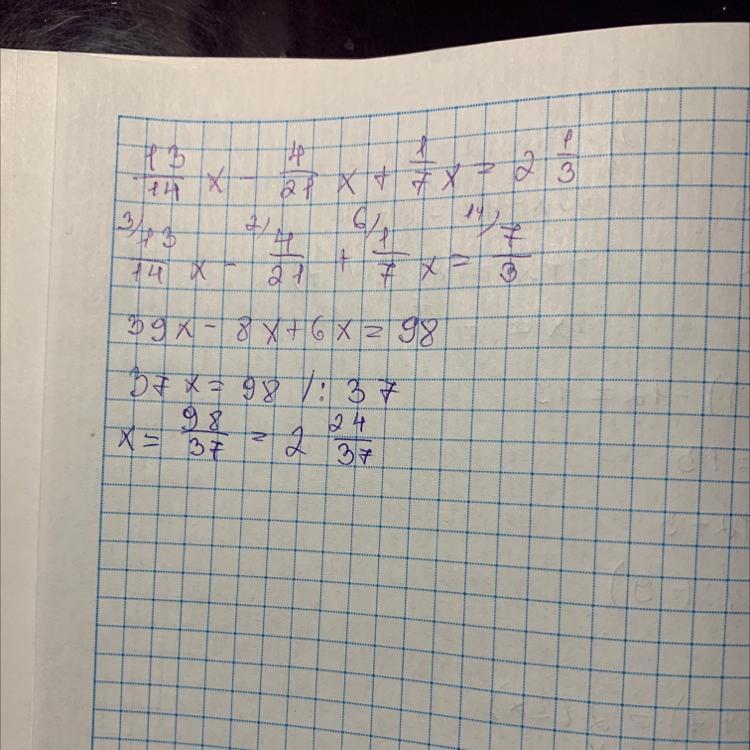 13/14 x - 4/21 x + 1/7 x = 2 1/3
3/ 13/14 x - 2/ 4/21 + 6/ 1/7 x = 14/ 7/3
39x - 8x + 6x = 98
37x = 98 /: 37
x = 98/37 = 2 24/37